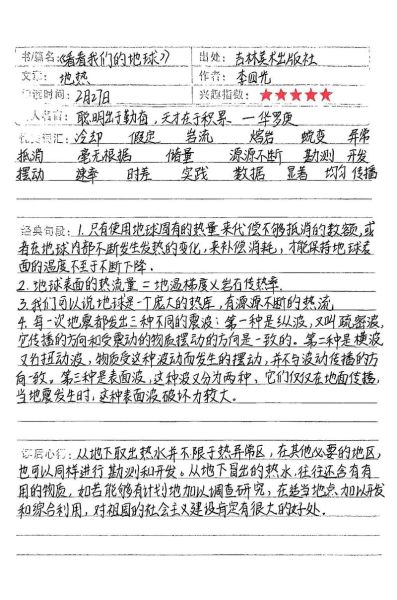 书/篇名:《看看我们的地球》 出处: 吉林美术出版社
文章: 地热 作者: 李四光
阅读时间: 2月27日 兴趣指数: ★★★★★
人名言: 聪明出于勤奋,天才在于积累 —华罗庚
词汇: 冷却 假定 岩流 熔岩 蜕变 异常
抵消 毫无根据 储量 源源不断 勘测 开发
摆动 速率 时差 实践 数据 显著 均匀 传播
经典句段: 1.只有使用地球固有的热量来代偿不够抵消的数额,或
者在地球内部不断发生发热的变化,来补偿消耗,才能保持地球表
面的温度不至于不断下降.
2.地球表面的热流量=地温梯度×岩石传热率.
3.我们可以说地球是一个庞大的热库,有源源不断的热流
4.每一次地震都发出三种不同的震波:第一种是纵波,又叫疏密波,
它传播的方向和受震动的物质摆动的方向是一致的。第二种是横波
又叫扭动波,物质受这种波动而发生的摆动,并不与波动传播的方
向一致。第三种是表面波,这种波又分为两种、它们仅仅在地面传播,
当地震发生时,这种表面波破坏力较大。
读后心得: 从地下取出热水并不限于热异常区,在其他必要的地区,
也可以同样进行勘测和开发。从地下冒出的热水,往往还含有有
用的物质,如若能够有计划地加以调查研究,在适当地点加以开发
和综合利用,对祖国的社会主义建设肯定有很大的好处.